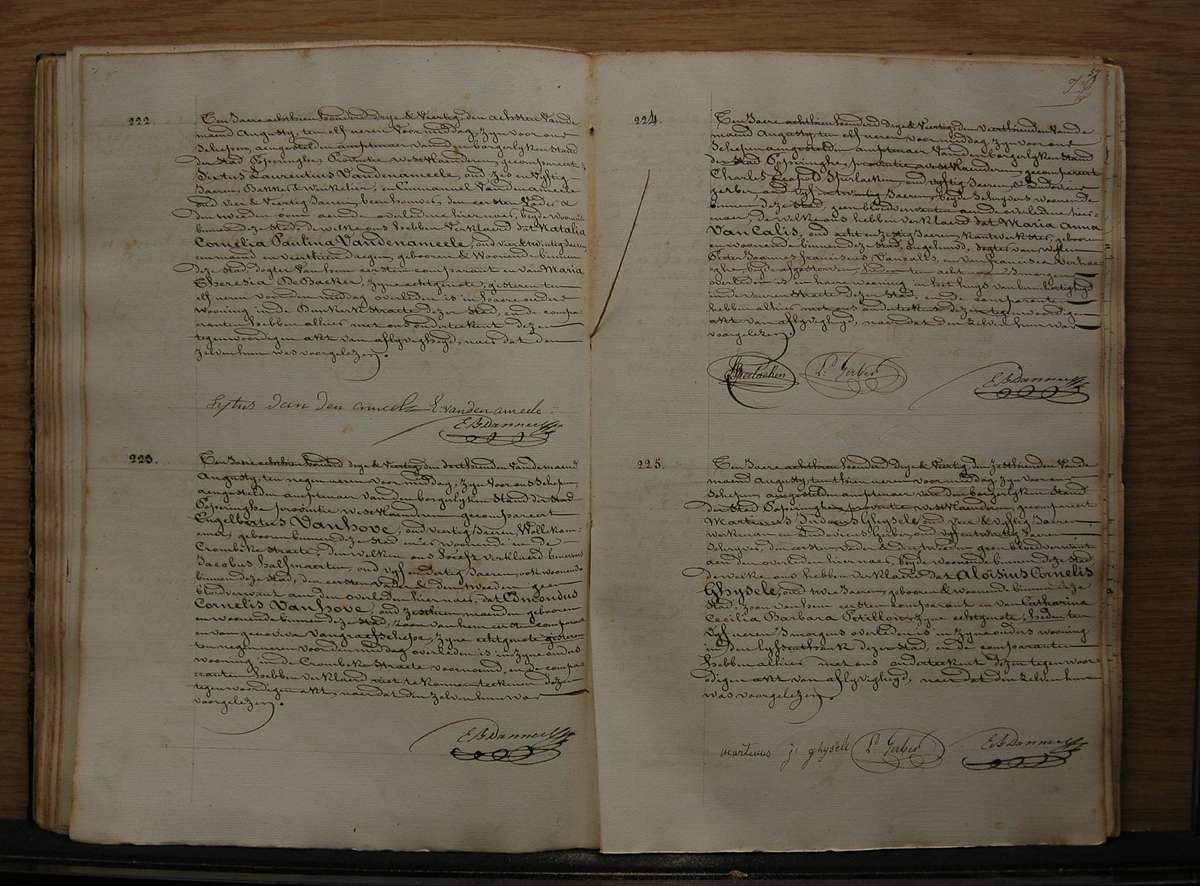 222.
Ten Jaere achttien honderd drye & Veertig, den achsten Van de
maend Augusty, ten elf uren Voor middag, Zyn voor ons
Schepen, aengestelden amptenaer Van den borgerlyken Stand
der Stad Poperinghe, Provintie westvlaenderen, gecompareert
Sixtus Laurentius Vandenameele, oud zes en Vyftig
Jaeren, Bakker & Winkelier, en Emmanuel Vandenameele
oud vier & Veertig Jaeren, beenhouwer, den eersten Vader &
den tweeden oom aen de overledene hiernaer, beyde woonende
binnen deze Stad, de welke ons hebben Verklaerd dat Natalia
Cornelia Paulina Vandenameele, oud vier & twintig Jaeren
een maend en veerthien dagen, gebooren & Woonende binnen
deze Stad, dogter Van hem eersten comparant en van Maria
Theresia De Backer, Zyne echtgenote, gisteren ten
elf uren voor den middag overleden is in haere ouders
wooning in de straete dezer Stad, en de compa-
ranten hebben alhier met ons onderteekent dezen
tegenwoordigen akt van aflyvigheyd, naer dat den
Zelven hun was voorgelezen.
E. Vandenameele
E B Danneel
223.
Ten Jaere achttien honderd drye & Veertig, den derthienden Van de maend
Augusty, ten negen uren Voor middag, Zyn Voor ons Schepen,
aengestelden amptenaer van den borgerlyken Stand der Stad
Poperinghe provintie westvlaenderen gecompareert
Engelbertus Vanhove, oud Veertig Jaeren, Wollekam-
mer, geboren binnen deze Stad en er woonende in de
Crombeke straete, den welken ons heeft verklaerd
Jacobus oud vyf en dertig Jaeren, ook woonende
binnen deze Stad, den eersten Vader & den tweeden geen
bloedverwant aen den overleden hiernaer, dat
Cornelis Vanhove, oud zesthien maenden, gebooren
en woonende binnen deze Stad, zoon van hem eerste comparant
en van Zyne echtgenote gisteren
ten negen uren voor den middag overleden is in zyne ouders
wooning in de Crombeke Straete voornoemd, en de compa-
ranten hebben verklaerd niet te konnen teekenen deze
tegenwoordigen akt, naer dat den Zelven hun was
voorgelezen.
E B Danneel
224.
Ten Jaere achttien honderd drye & Veertig, den Veerthienden Van de
maend Augusty, ten elf uren voor middag, Zyn voor ons
Schepen aengestelden amptenaer Van den borgerlyken Stand
der Stad Poperinghe, provintie westvlaenderen, gecompareert
Charles Leopold oud vyftig Jaeren,
Gerber oud vyf en twintig Jaeren, beyde Schryvers woonende
binnen deze Stad, geen bloedverwanten aen de overledene hier-
naer, de welke ons hebben verklaerd dat Maria Anna
Van Calis, oud acht en zestig Jaeren, Kantwerkster, gebooren
en woonende binnen deze Stad, dogter van wylen
Pieter Joannes Franciscus Vancalis, en van Francisca
beyde afgestorven, heden ten acht uren 's morgens
overleden is in haere wooning in het huys van
in de straete dezer Stad, en de comparanten
hebben alhier met ons onderteekent dezen tegenwoordigen
akt van aflyvigheyd, naer dat den Zelven hun was
voorgelezen.
L. Gerber
E B Danneel
225.
Ten Jaere achttien honderd drye & Veertig, den Zesthienden Van de
maend Augusty, ten thien uren voor middag, Zyn voor ons
Schepen, aengestelden amptenaer van den borgerlyken Stand
der Stad Poperinghe, provintie westvlaenderen, gecompareert
Martinus Ghysele oud vier & vyftig Jaeren,
werkman en Ludovicus Gerber, oud vyf en twintig Jaeren
Schryver, den eersten Vader & den tweeden geen bloedverwant
aen den overleden hiernaer, beyde woonende binnen deze Stad
de welke ons hebben verklaerd dat Aloisius Cornelis
Ghysele, oud twee Jaeren, gebooren & woonende binnen deze
Stad, zoon van hem eersten comparant en van Catharina
Cecilia Barbara Petillon, zyne echtgenote, heden ten
vyf uren 's morgens overleden is in zyne ouders wooning
in den dezer Stad, en de comparanten
hebben alhier met ons onderteekent dezen tegenwoor-
digen akt van aflyvigheyd, naer dat den Zelven hun
was voorgelezen.
martinus j ghysele
L. Gerber
E B Danneel